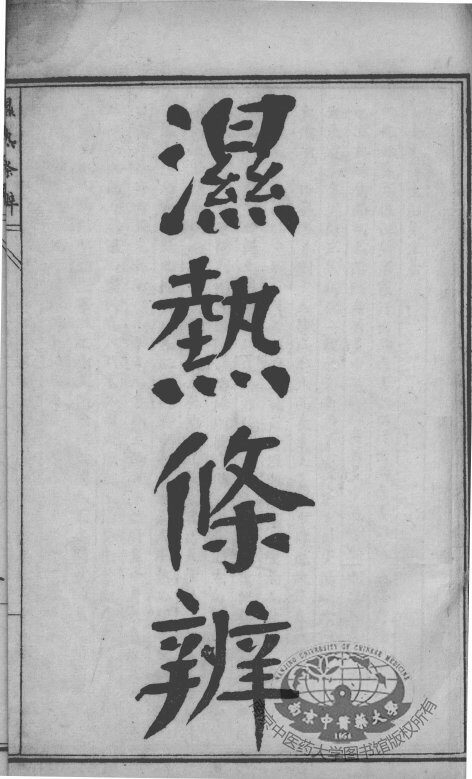 濕熱條辨
濕熱條辨
NANJING UNIVERSITY OF CHINESE MEDICINE
南京中醫藥大學
1954
南京中医药大学图书馆版权所有